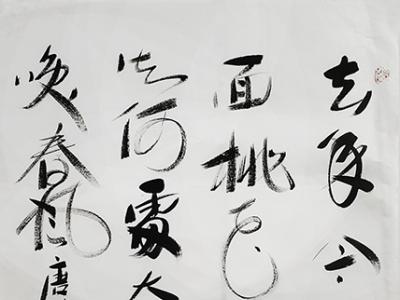 去年今
面桃花
知何處
咲春風唐